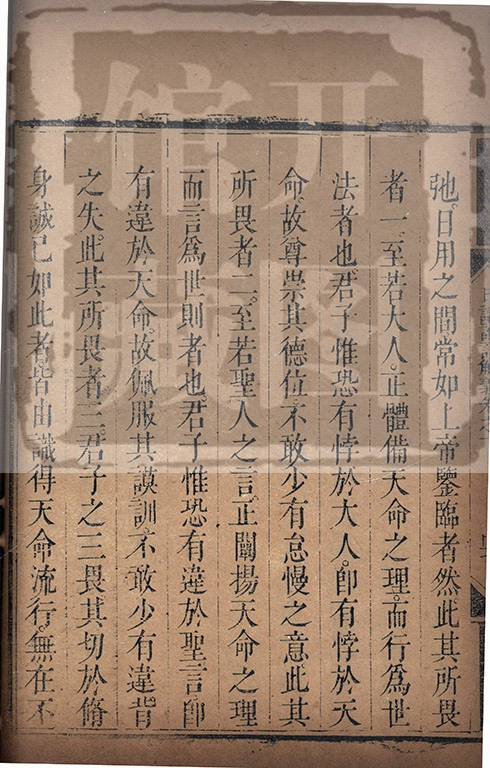 弛。日用之間常如上帝鑒臨者然此其所畏
者一。至若大人。正體備天命之理。而行爲世
法者也。君子惟恐有悖於大人。卽有悖於天
命。故尊崇其德位不敢少有怠慢之意此其
所畏者二。至若聖人之言。正闡揚天命之理
而言爲世則者也君子惟恐有違於聖言卽
有違於天命。故佩服其謨訓不敢少有違背
之失。此其所畏者三。君子之三畏其切於脩
身誠己如此者皆由識得天命流行。無在不